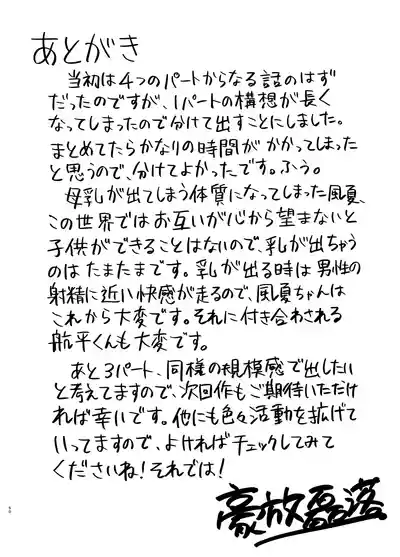 あとがき
当初は4つのパートからなる話のはず
だったのですが、1パートの構想が長く
なってしまったので分けて出すことにしました。
まとめてたらかなりの時間がかかってしまった
と思うので、分けてよかったです。ふう。
母乳が出てしまう体質になってしまった風夏、
この世界ではお互いが心から望まないと
子供ができることはないので、乳が出ちゃう
のはたまたまです。乳が出る時は男性の
射精に近い快感が走るので、風夏ちゃんは
これから大変です。それに付き合わされる
航平くんも大変です。
あと3パート、同様の規模感で出したい
と考えてますので、次回作もご期待いただけ
れば幸いです。他にも色々活動を拡げて
いってますので、よければチェックしてみて
くださいね!それでは!
豪放磊落